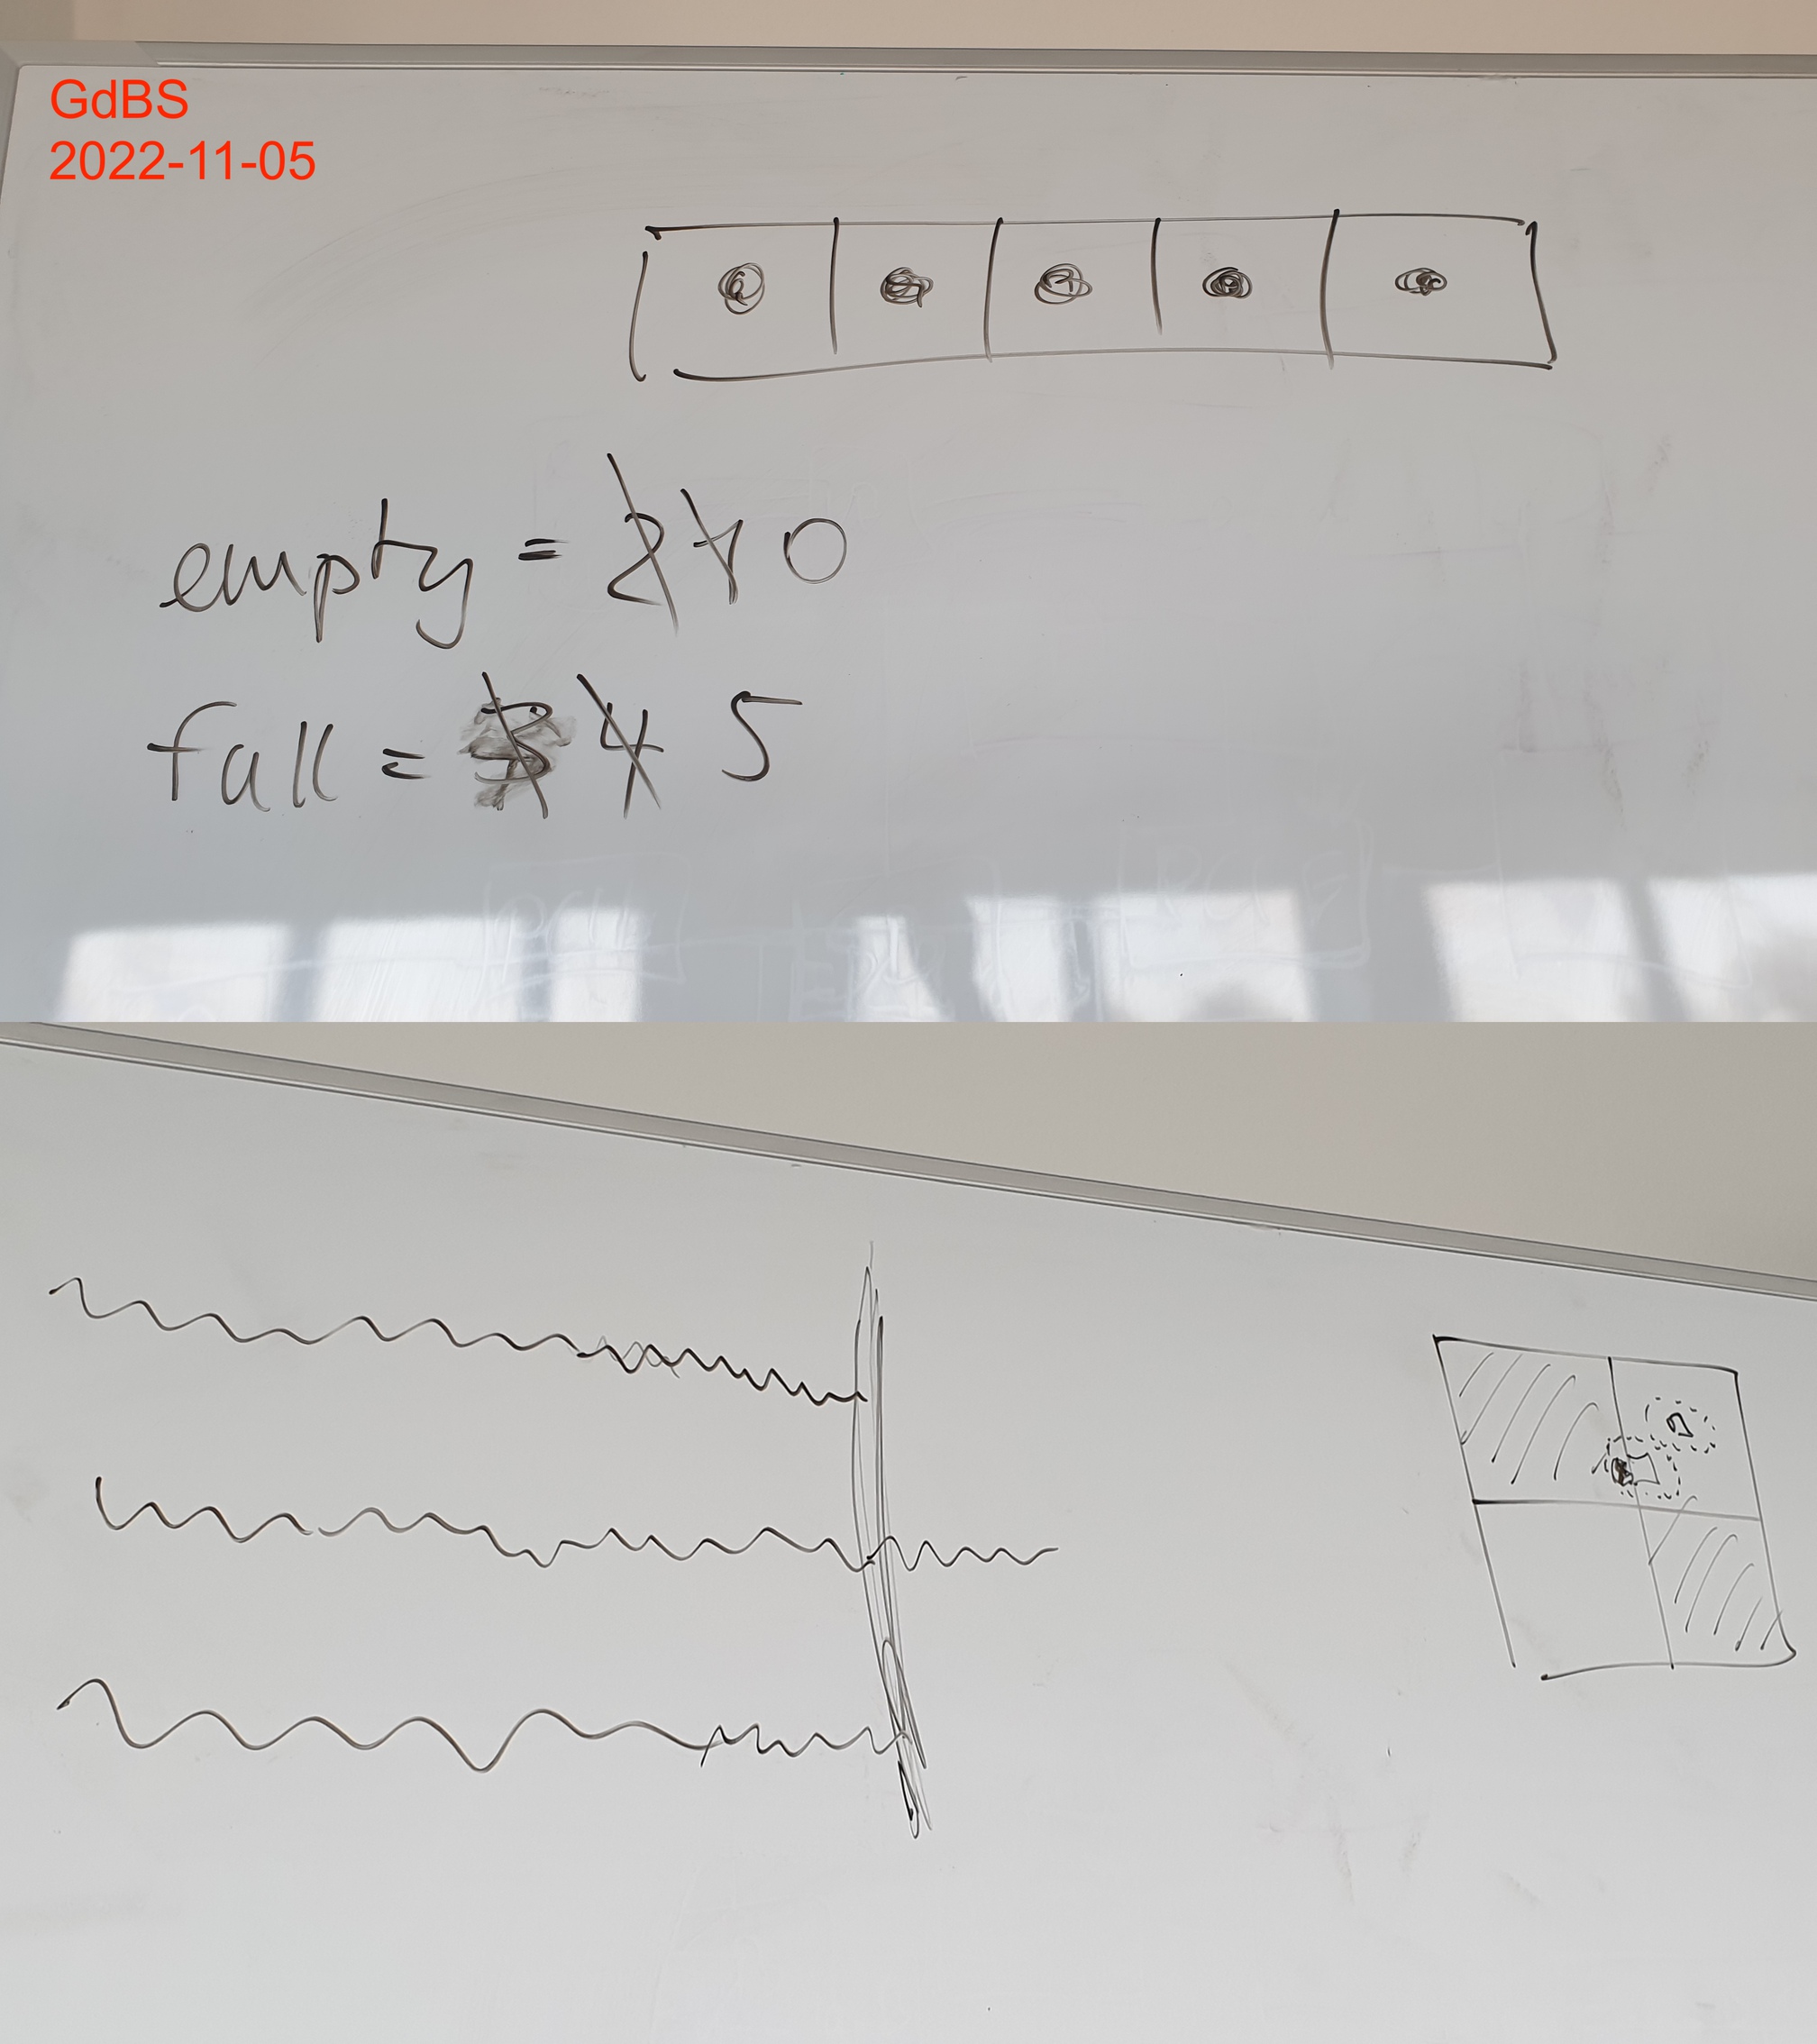 GdBS
2022-11-05
empty = 2 1 0
full = 3 4 5